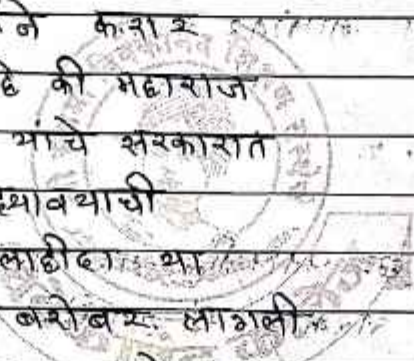 ने करार
हे की महाराज
यांचे सरकारात
द्यावयाची
लाहीदा या
बरोबर लागली